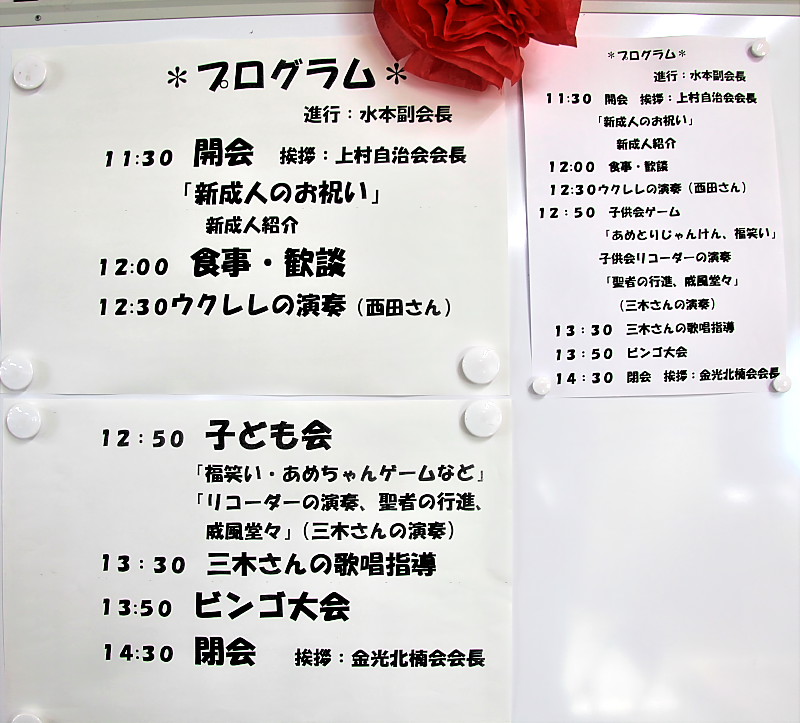 ＊プログラム＊
進行：水本副会長
11:30 開会 挨拶：上村自治会会長
「新成人のお祝い」
新成人紹介
12:00 食事・歓談
12:30ウクレレの演奏（西田さん）
12：50 子ども会
「福笑い・あめちゃんゲームなど」
「リコーダーの演奏、聖者の行進、
威風堂々」（三木さんの演奏）
13：30 三木さんの歌唱指導
13:50 ビンゴ大会
14:30 閉会 挨拶：金光北楠会会長
＊プログラム＊
進行：水本副会長
11:30 開会 挨拶：上村自治会会長
「新成人のお祝い」
新成人紹介
12:00 食事・歓談
12:30ウクレレの演奏（西田さん）
12：50 子供会ゲーム
「あめとりじゃんけん、福笑い」
子供会リコーダーの演奏
「聖者の行進、威風堂々」
（三木さんの演奏）
13：30 三木さんの歌唱指導
13：50 ビンゴ大会
14：30 閉会 挨拶：金光北楠会会長